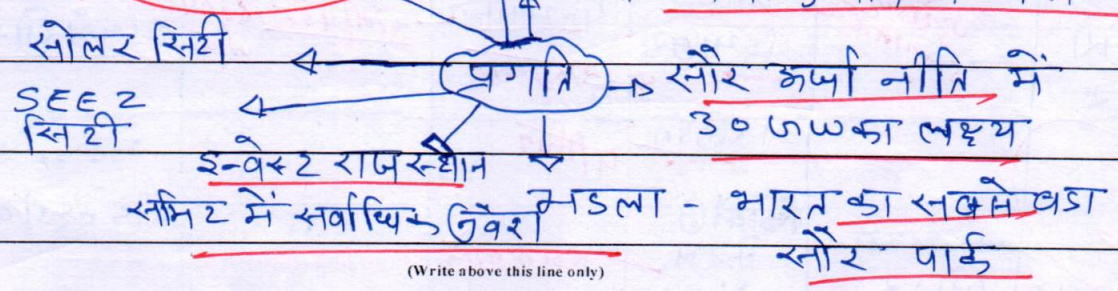 सोलर सिटी
प्रगति
सौर ऊर्जा नीति में
30 GW का लक्ष्य
SEEZ
सिटी
इन्वेस्ट राजस्थान
समिट में सर्वाधिक निवेश
भडला - भारत का सबसे बडा
सौर पार्क
(Write above this line only)